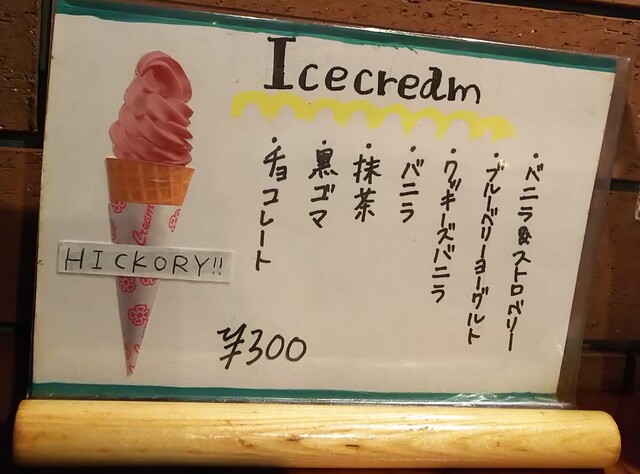 Icecream
・バニラ&ストロベリー
・ブルーベリーヨーグルト
・クッキーズバニラ
・バニラ
・抹茶
・黒ゴマ
・チョコレート
HICKORY!!
¥300
Cream